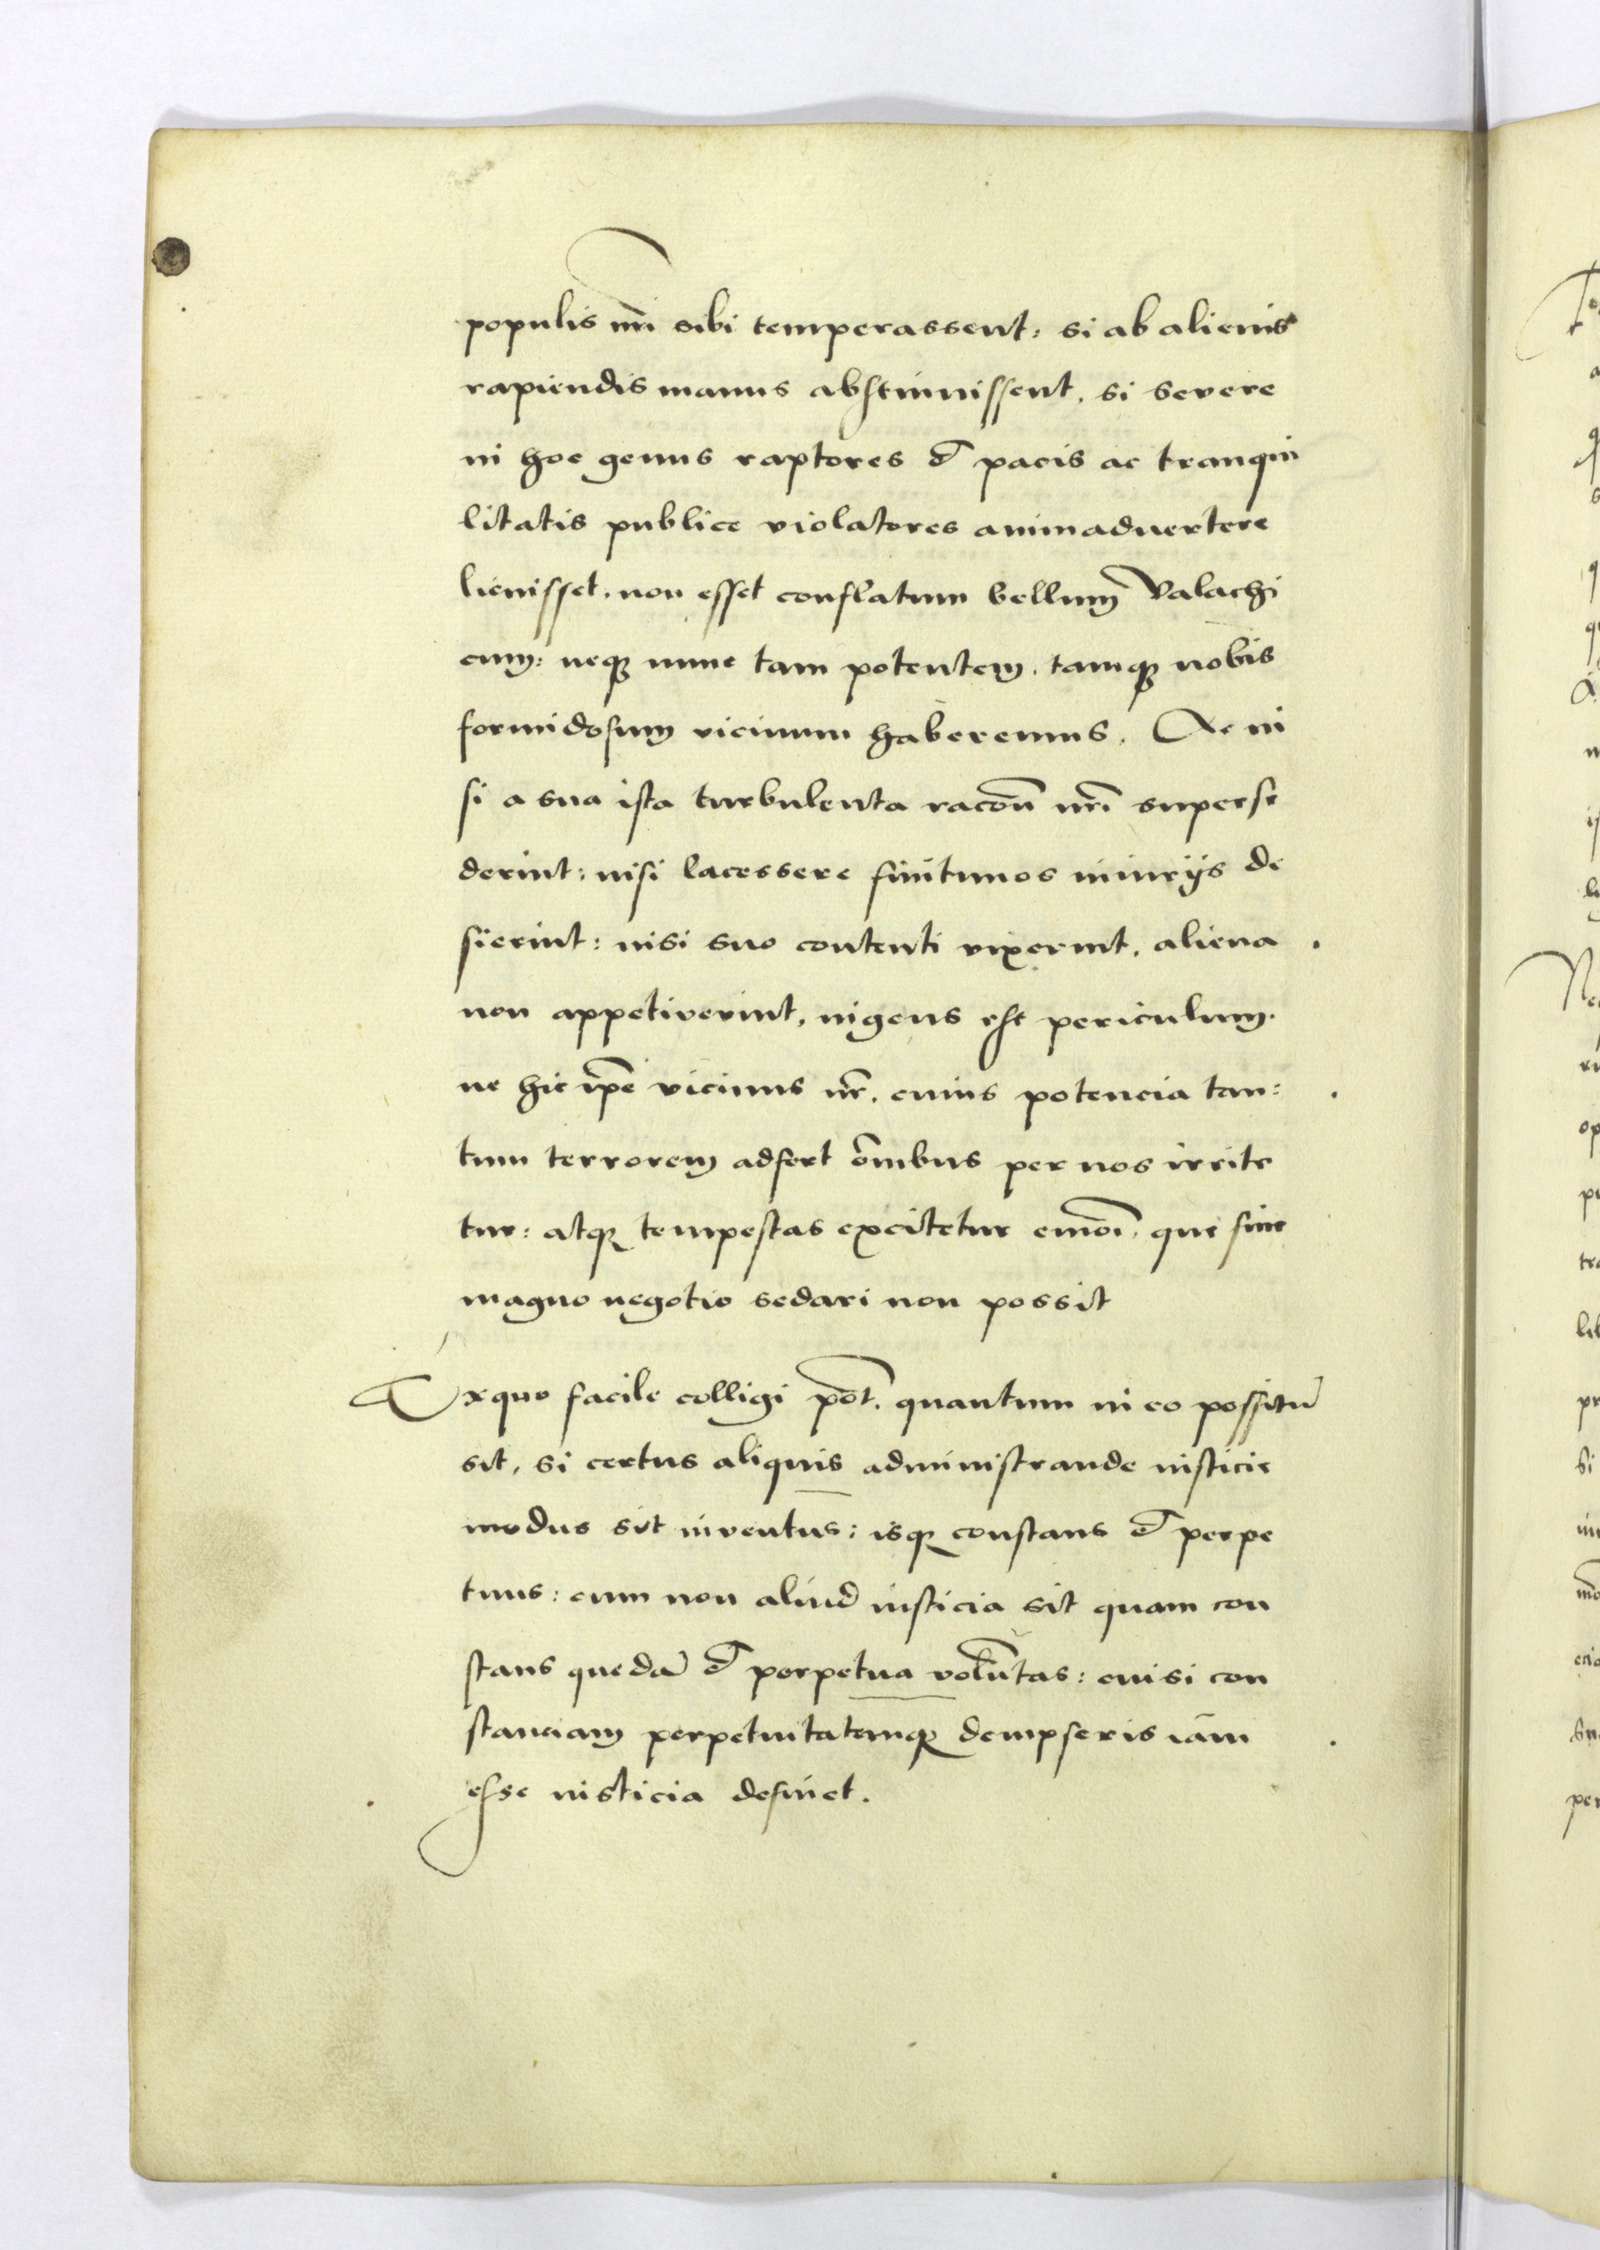 populis nrī sibi temperassent: si ab alienis
rapiendis manus abstinuissent, si severe
in hoc genus raptores et pacis ac tranqui
litatis publice violatores animadvertere
licuisset. non esset conflatum bellum Valachi
cum: neqꝫ nunc tam potentem, tamqꝫ nobis
formidosum vicinum haberemus. Ac ni
si a sua ista turbulenta racōn nrī superse
derint: nisi lacessere finitimos iniurijs de
sierint: nisi suo contenti vixerint, aliena
non appetiverint, ingens est periculum.
ne hic ip̄e vicinus nr̄. cuius potencia tan:
tum terrorem adfert ōmibus per nos irrite
tur: atqꝫ tempestas excitetur que sine
magno negotio sedari non possit
Ex quo facile colligi pōt. quantum in eo possitū
sit, si certus aliquis administrande iusticie
modus sit inventus: isqꝫ constans et perpe
tuus: cum non aliud iusticia sit quam con
stans quedā et perpetua volūtas: cui si con
stanciam perpetuitatemqꝫ dempseris iam
esse iusticia desinet.